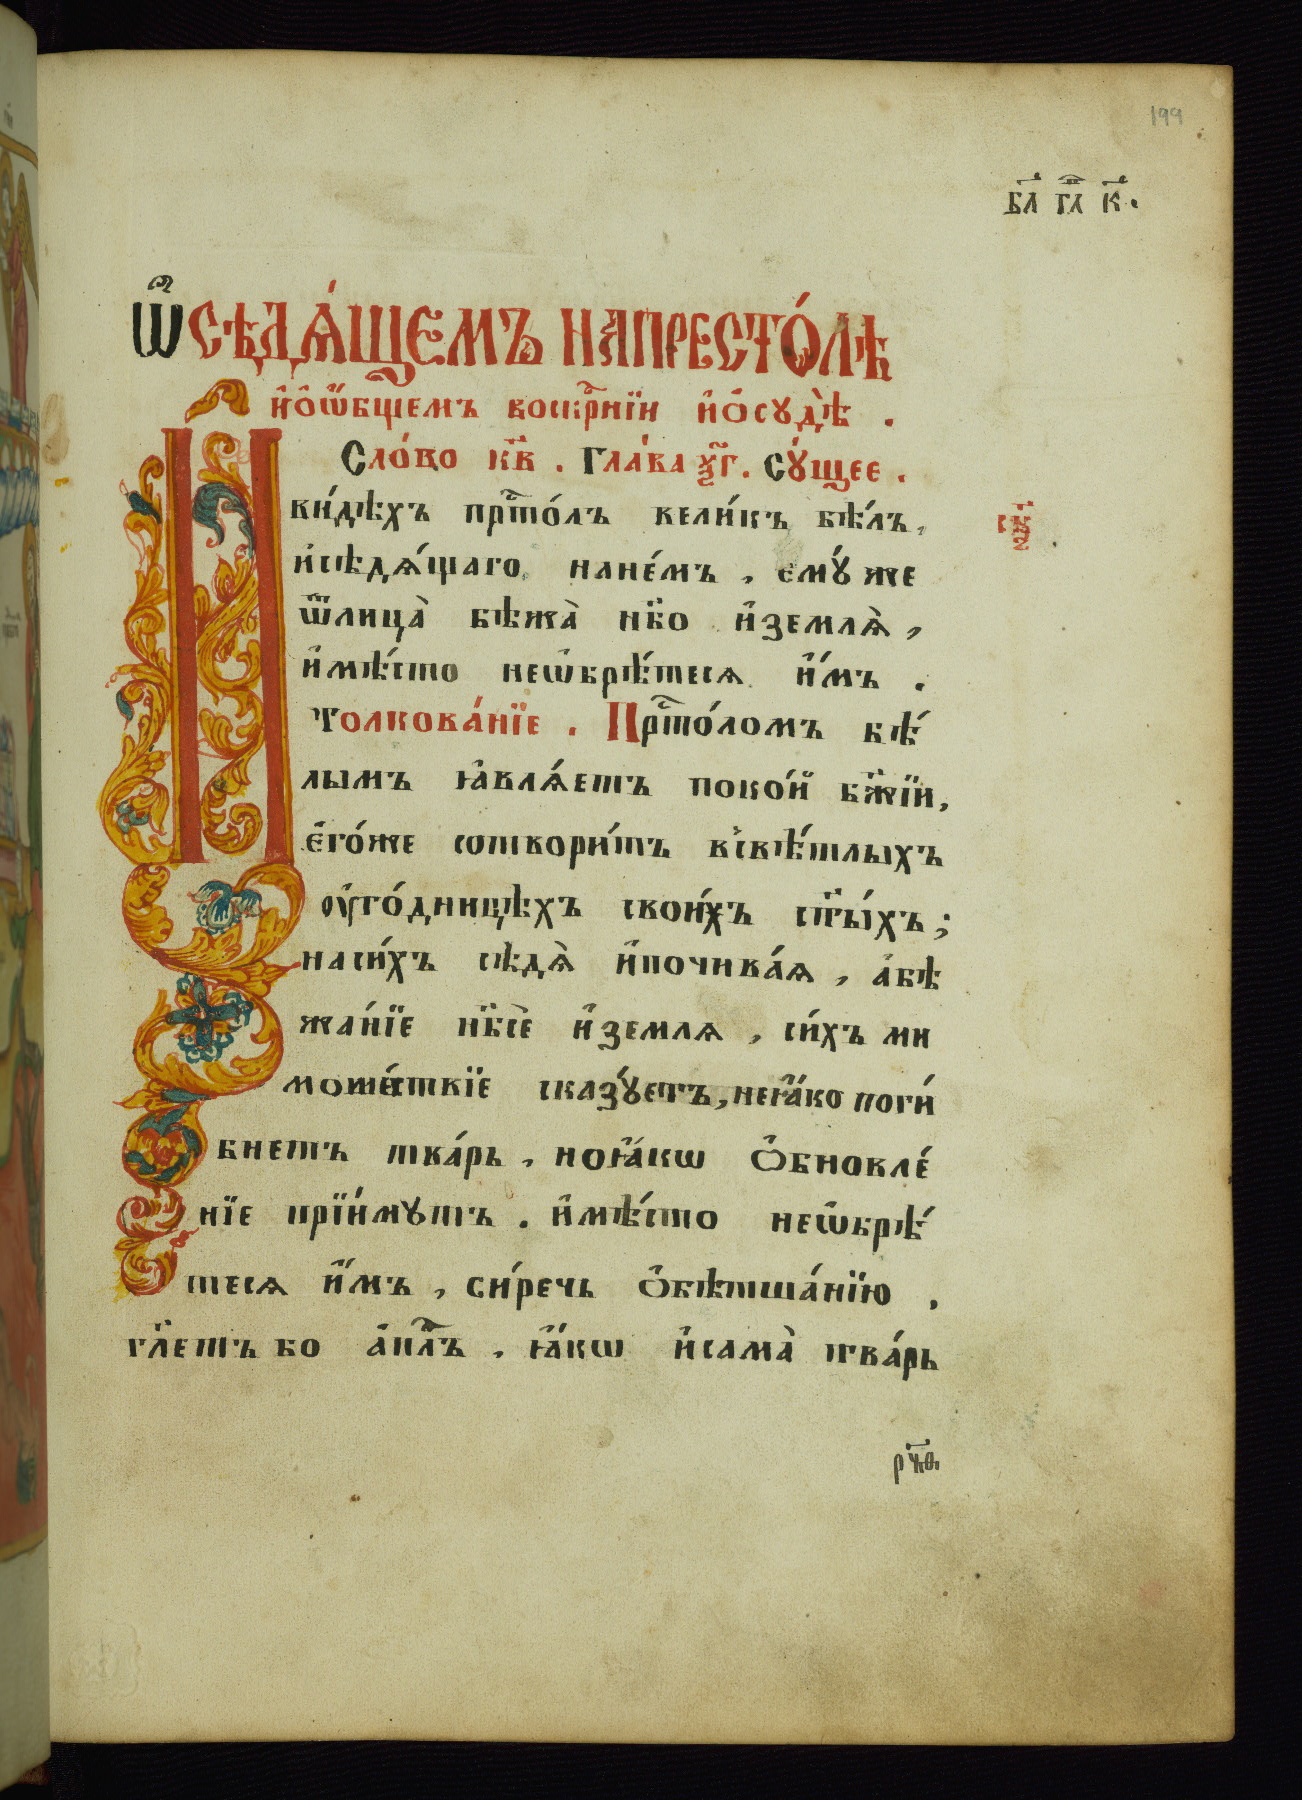 199
бл҃ гл҃ к҃.
Ѡ҆ СѢДѦ́ЩЕМЪ НАПРЕСТО́ЛѢ
и҆ ѻ҆ѡ҆бщемъ воскрⷭ҇нїи и҆ ѻ҆судѣ̀ .
Сло́во к҃в . Глава̀ ѯ҃г . Су́щее .
И ви́дѣхъ прⷭ҇то́лъ вели́къ бѣ́лъ,
и҆сѣдѧ́щаго нане́мъ , є҆му́ же
ѿлица̀ бѣжа̀ нб҃о и҆земля̀ ,
и҆мѣ́сто неѡ҆брѣ́теся и҆́мъ .
Толкова́нїе . Прⷭ҇то́ломъ бѣ́
лымъ ꙗ҆вля́етъ поко́й бж҃їй,
є҆го́же сотвори́тъ всвѣ́тлыхъ
ѹ҆го́дницѣхъ свои́хъ ст҃ы́хъ ;
наси́хъ сѣдѧ̀ и҆почива́ѧ , а҆бѣ
жа́нїе нб҃сѐ и҆земля , си́хъ ми
моше́ствїе сказу́етъ, неꙗ҆́ко поги́
бнетъ тва́рь , ноꙗ҆́кѡ ѻ҆бновле́
нїе прїи́мутъ . и҆мѣ́сто неѡ҆брѣ́
теся и҆́мъ , си́речь ѻ҆бѣтша́нїю .
гл҃етъ бо а҆пⷭ҇лъ , ꙗ҆́кѡ и҆сама̀ тва́рь
рч҃ѳ.